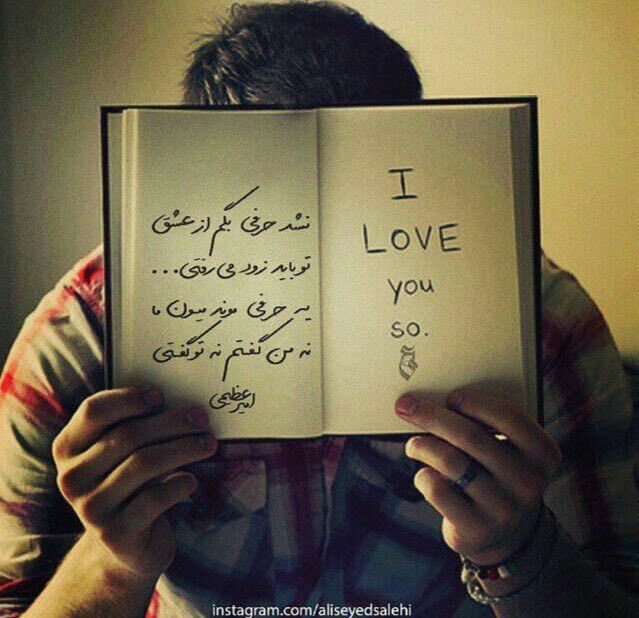 نشد حرفی بگم از عشق
تو باید زود می رفتی...
یه حرفی موند میون ما
نه من گفتم نه تو گفتی
امیر عظیمی
I
LOVE
you
so.
instagram.com/aliseyedsalehi